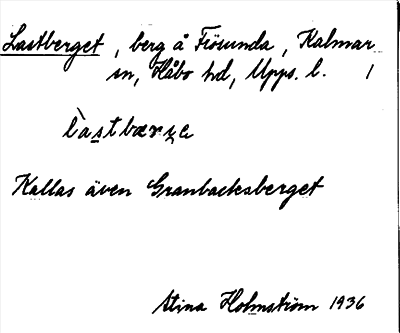 Lastberget, berg å Frösunda, Kalmar
sn, Håbo hd, Upps. l. 1
Kallas även Granbacksberget
Stina Holmström 1936